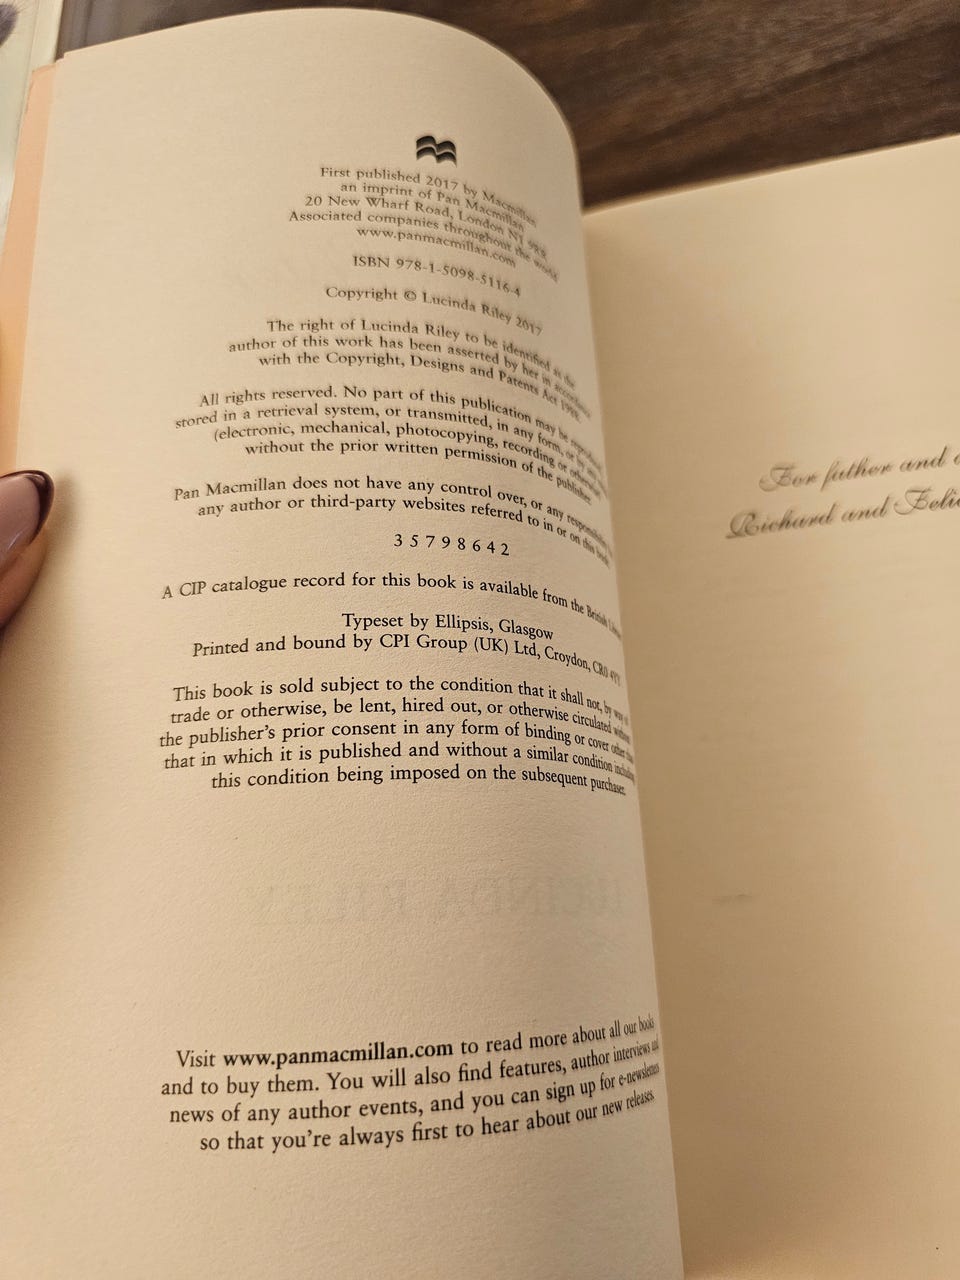 First published 2017 by Macmillan
an imprint of Pan Macmillan
20 New Wharf Road, London N1 9RR
Associated companies throughout the world
www.panmacmillan.com
ISBN 978-1-5098-5116-4
Copyright © Lucinda Riley 2017
The right of Lucinda Riley to be identified as the
author of this work has been asserted by her in accordance
with the Copyright, Designs and Patents Act 1988.
All rights reserved. No part of this publication may be reproduced,
stored in a retrieval system, or transmitted, in any form, or by any
(electronic, mechanical, photocopying, recording or otherwise)
without the prior written permission of the publisher.
Pan Macmillan does not have any control over, or any responsibility
any author or third-party websites referred to in or on this book.
3 5 7 9 8 6 4 2
A CIP catalogue record for this book is available from the British
Typeset by Ellipsis, Glasgow
Printed and bound by CPI Group (UK) Ltd, Croydon, CR0 4YY
This book is sold subject to the condition that it shall not, by way of
trade or otherwise, be lent, hired out, or otherwise circulated without
the publisher's prior consent in any form of binding or cover other than
that in which it is published and without a similar condition including
this condition being imposed on the subsequent purchaser.
Visit www.panmacmillan.com to read more about all our books
and to buy them. You will also find features, author interviews and
news of any author events, and you can sign up for e-newsletters
so that you're always first to hear about our new releases.
For father and
Richard and